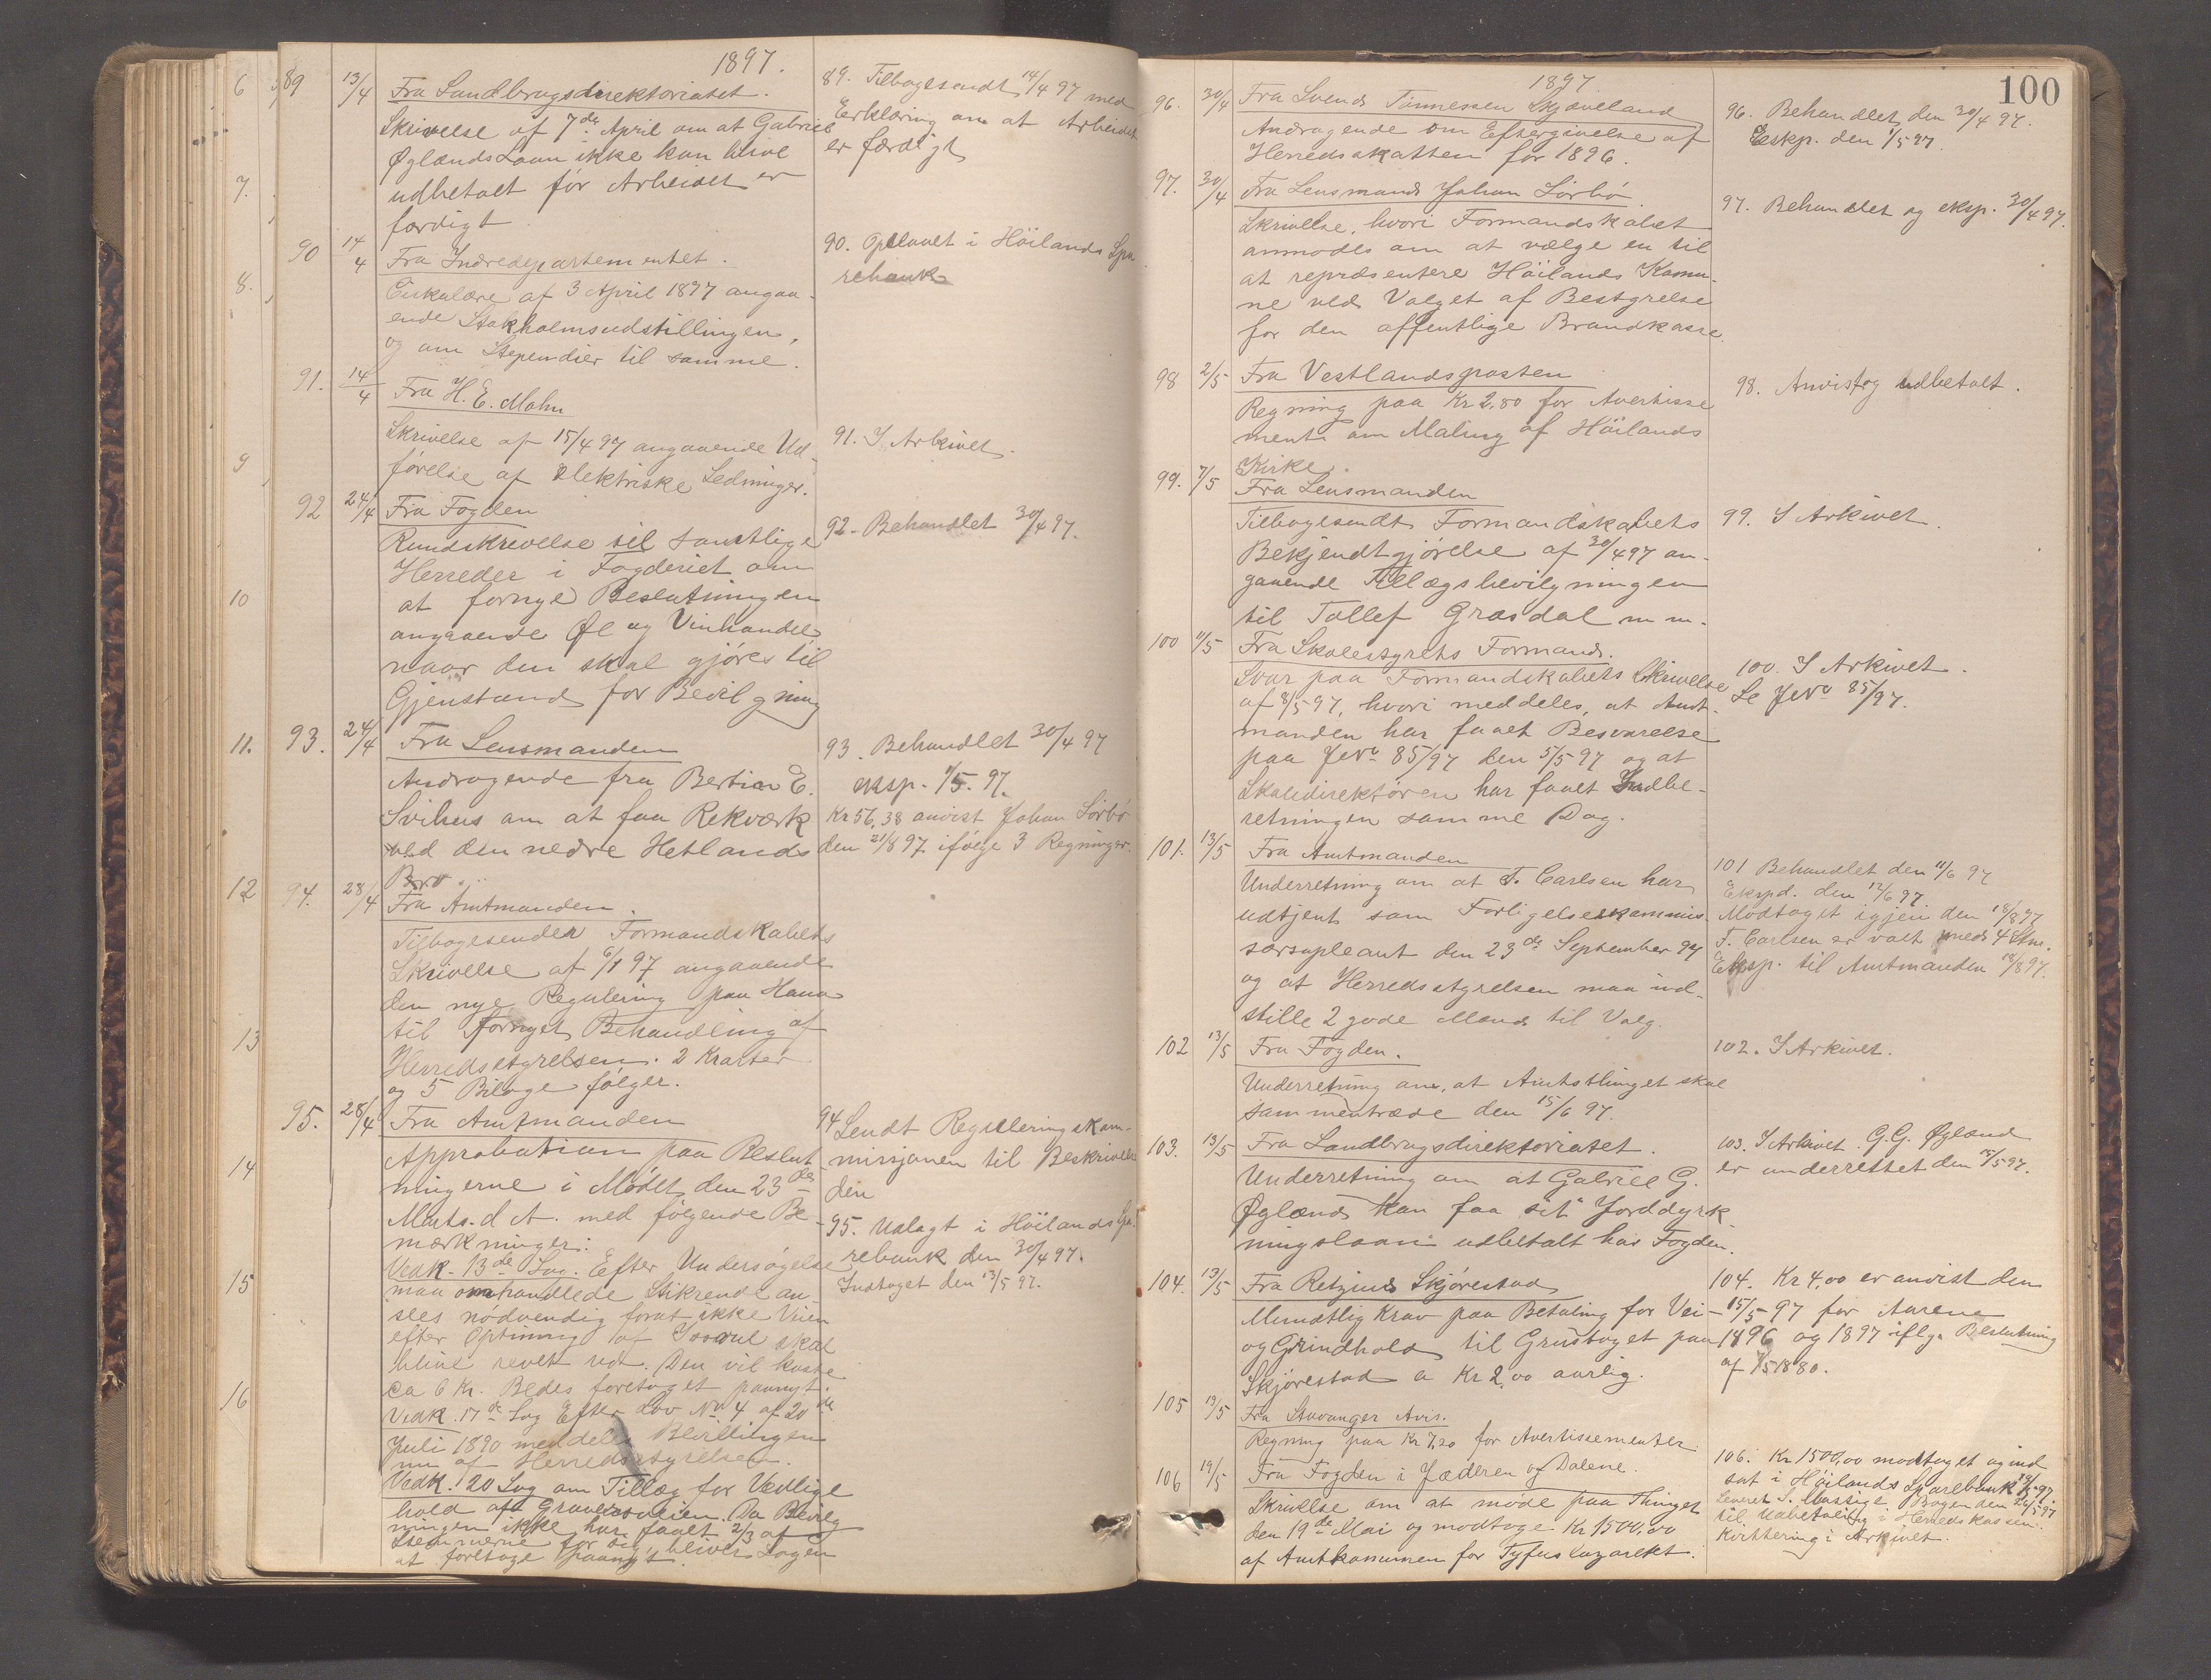 1897.
89 13/4 Fra Landbrugsdirektoriatet.
Skrivelse af 7de April om at Gabriel
Øglænds Laan ikke kan blive
udbetalt før Arbeidet er
færdigt
89. Tilbagesendt 14/4 97 med
Erklæring om at Arbeidet
er færdigt
90 14/4 Fra Indredepartementet.
Cirkulære af 3 April 1897 angaa-
ende Stokholmsudstillingen,
og om Stependier til samme.
90. Opslaaet i Höilands Spa
rebank
91. 14/4 Fra H. E. Mohn
Skrivelse af 15/4 97 angaaende Ud-
førelse af elektriske Ledninger.
91. I Arkivet.
92 24/4 Fra Fogden
Rundskrivelse til samtlige
Herreder i Fogderiet om
at fornye Beslutningen
angaaende Øl og Vinhandel,
naar den skal gjøres til
Gjenstand for Bevilgning
92- Behandlet 30/4 97.
93. 24/4 Fra Lensmanden
Andragende fra Bertin E.
Svihus om at faa Rekværk
ved den nedre Hetlands
Bro
93. Behandlet 30/4 97
eksp. 1/5. 97.
Kr 56,38 anvist Johan Sørbø
den 21/8 97 ifølge 3 Regninger.
94. 28/4 Fra Amtmanden.
Tilbagesender Formandskabets
Skrivelse af 6/1 97 angaaende
den nye Regulering paa Hana
til fornyet Behandling af
Herredsstyrelsen. 2 Karter
og 5 Bilage følger.
95. 28/4 Fra Amtmanden
Approbation paa Beslut
ningerne i Mødet den 23de
Marts d. A. med følgende Be
mærkninger:
Vedk. 13de Sag. Efter Undersøgelse
maa omhandlede Stikrende an
sees nødvendig forat ikke Veien
efter Optining af skal
blive revet ud. Den vil koste
ca 6 Kr. Bedes foretaget paanyt.
Vedk. 17de Sag Efter Lov No 4 af 20de
Juli 1890 meddeles Bevillingen
nu af Herredsstyrelsen.
Vedk. 20 Sag om Tillæg for Vedlige
hold af Graveveien. Da Bevilg
ningen ikke har faaet 2/3 af
Stemmerne for sig, bliver Sagen
at foretage paanyt.
94 Sendt Reguleringskom-
missjonen til Beskrivelse
den
95. Udlagt i Höilands Spa
rebank den 30/4 97.
Indtaget den 13/5 97.
6
7.
8.
9
10
11.
12
13
14
15
16
100
1897
96. 30/4 Fra Svend Tønnessen Skjæveland
Andragende om Eftergivelse af
Herredsskatten for 1896.
96. Behandlet den 30/4 97.
Eskp. den 1/5 97.
97. 30/4 Fra Lensmand Johan Sørbø.
Skrivelse, hvori Formandskabet
anmodes om at vælge en til
at repræsentere Høilands Komu-
ne ved Valget af Bestyrelse
for den offentlige Brandkasse.
97. Behandlet og eksp. 30/4 97.
98 2/5 Fra Vestlandsposten
Regning paa Kr 2,80 for Avertisse
ment om Maling af Höilands
Kirke.
98. Anvist og udbetalt.
99. 7/5 Fra Lensmanden
Tilbagesendt Formandskabets
Bekjendtgjørelse af 30/4 97 an-
gaaende Tillægsbevilgningen
til Tollef Grasdal m m.
99. I Arkivet.
100 11/5 Fra Skolestyrets Formand.
Svar paa Formandskabets Skrivelse
af 8/5 97, hvori meddeles, at Amt-
manden har faaet Besvarelse
paa J No 85/97 den 5/5 97 og at
Skoledirektøren har faaet Indbe-
retningen samme Dag.
100. I Arkivet.
Se J No 85/97.
101. 13/5 Fra Amtmanden
Underretning om at T. Carlsen har
udtjent som Forligelseskommis
særsupleant den 23de September 97
og at Herredsstyrelsen maa ind-
stille 2 gode Mænd til Valg.
101 Behandlet den 11/6 97
Ekspd. den 12/6 97
Modtaget igjen den 18/8 97
T. Carlsen er valt med 4 Stm.
Eksp. til Amtmanden 18/8 97.
102 13/5 Fra Fogden.
Underretning om, at Amtsthinget skal
sammentræde den 15/6 97.
102. I Arkivet.
103. 13/5 Fra Landbrugsdirektoriatet.
Underretning om at Gabriel G.
Øglænd kan faa sit Jorddyrk-
ningslaan udbetalt hos Fogden.
103. I Arkivet. G. G. Øglænd
er underrettet den 15/5 97.
104. 13/5 Fra Retzius Skjørestad
Mundtlig Krav paa Betaling for Vei-
og Grindhold til Grustaget paa
Skjørestad a Kr 2,00 aarlig.
104. Kr 4,00 er anvist den
15/5 97 for Aarene
1896 og 1897 iflg. Beslutning
af 7/5 1880.
105 19/5 Fra Stavanger Avis.
Regning paa Kr 7,20 for Avertissementer
106 19/5 Fra Fogden i Jæderen og Dalene.
Skrivelse om at møde paa Thinget
den 19de Mai og modtage Kr 1500,00
af Amtkomunen for Tyfuslazarekt.
106. Kr 1500,00 modtaget og ind
sat i Høilands Sparebank 19/5 97.
Leveret S. Bogen den 26/5 97
til Udbetaling i Herredskassen
Kvittering i Arkivet